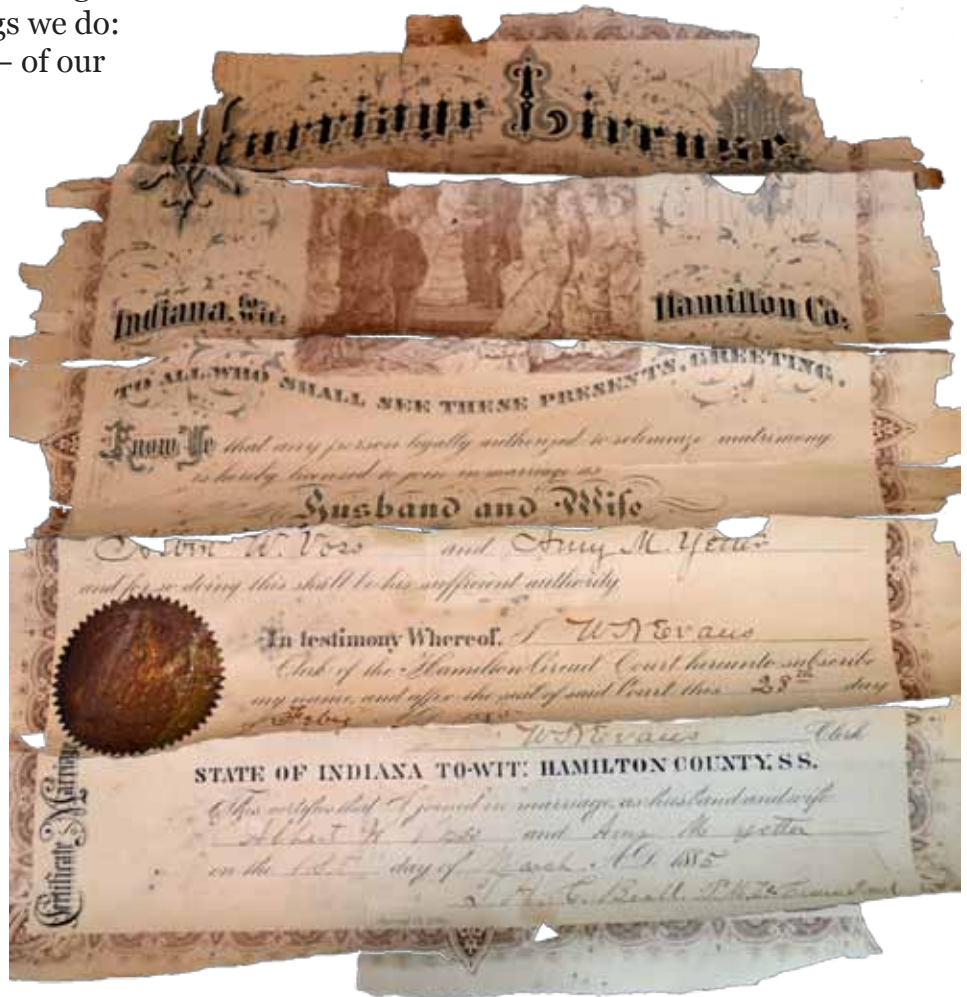 gs we do:
– of our
Marriage License
Indiana, to Wit:
Hamilton Co:
TO ALL WHO SHALL SEE THESE PRESENTS, GREETING.
Know Ye that any person legally authorized to solemnize matrimony
is hereby licensed to join in marriage as
Husband and Wife
W. Voss and Amy M.
and for so doing this shall be his sufficient authority
In testimony Whereof, I W N Evans
Clerk of the Hamilton Circuit Court hereunto subscribe
my name, and affix the seal of said Court this 28th day
W N Evans Clerk
STATE OF INDIANA TO-WIT: HAMILTON COUNTY, SS.
This certifies that I joined in marriage as husband and wife
Albert W Voss and Amy M Yetter
on the 1st day of March A.D. 1885
Certificate of Marriage